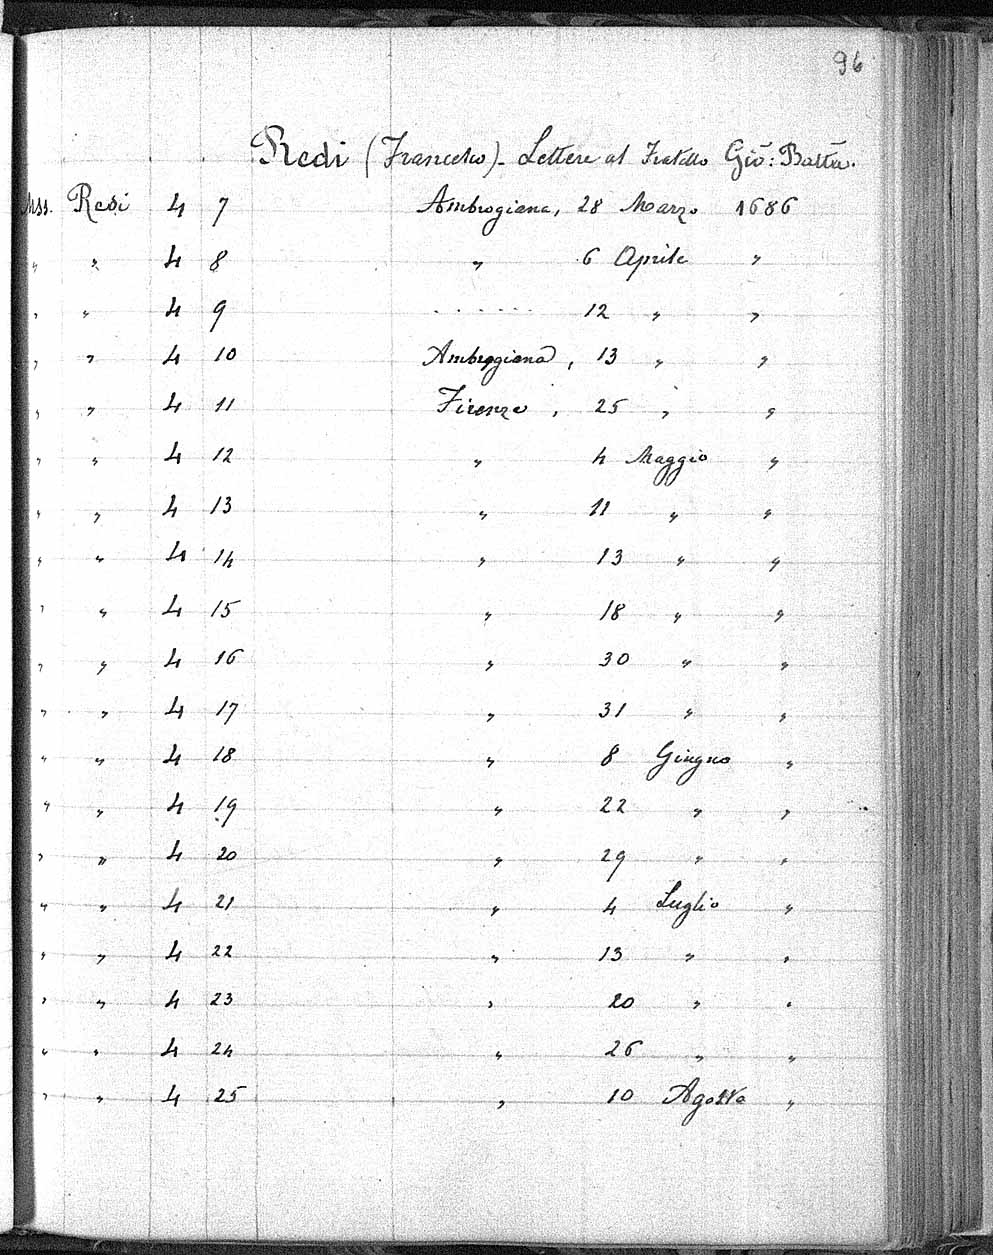 96
Redi (Francesco) - Lettere al Fratello Gio: Batta.
Mss. Redi 4 7 Ambrogiana, 28 Marzo 1686
" " 4 8 " 6 Aprile "
" " 4 9 . . . . . . 12 " "
" " 4 10 Ambrogiana, 13 " "
" " 4 11 Firenze, 25 " "
" " 4 12 " 4 Maggio "
" " 4 13 " 11 " "
" " 4 14 " 13 " "
" " 4 15 " 18 " "
" " 4 16 " 30 " "
" " 4 17 " 31 " "
" " 4 18 " 8 Giugno "
" " 4 19 " 22 " "
" " 4 20 " 29 " "
" " 4 21 " 4 Luglio "
" " 4 22 " 13 " "
" " 4 23 " 20 " "
" " 4 24 " 26 " "
" " 4 25 " 10 Agosto "